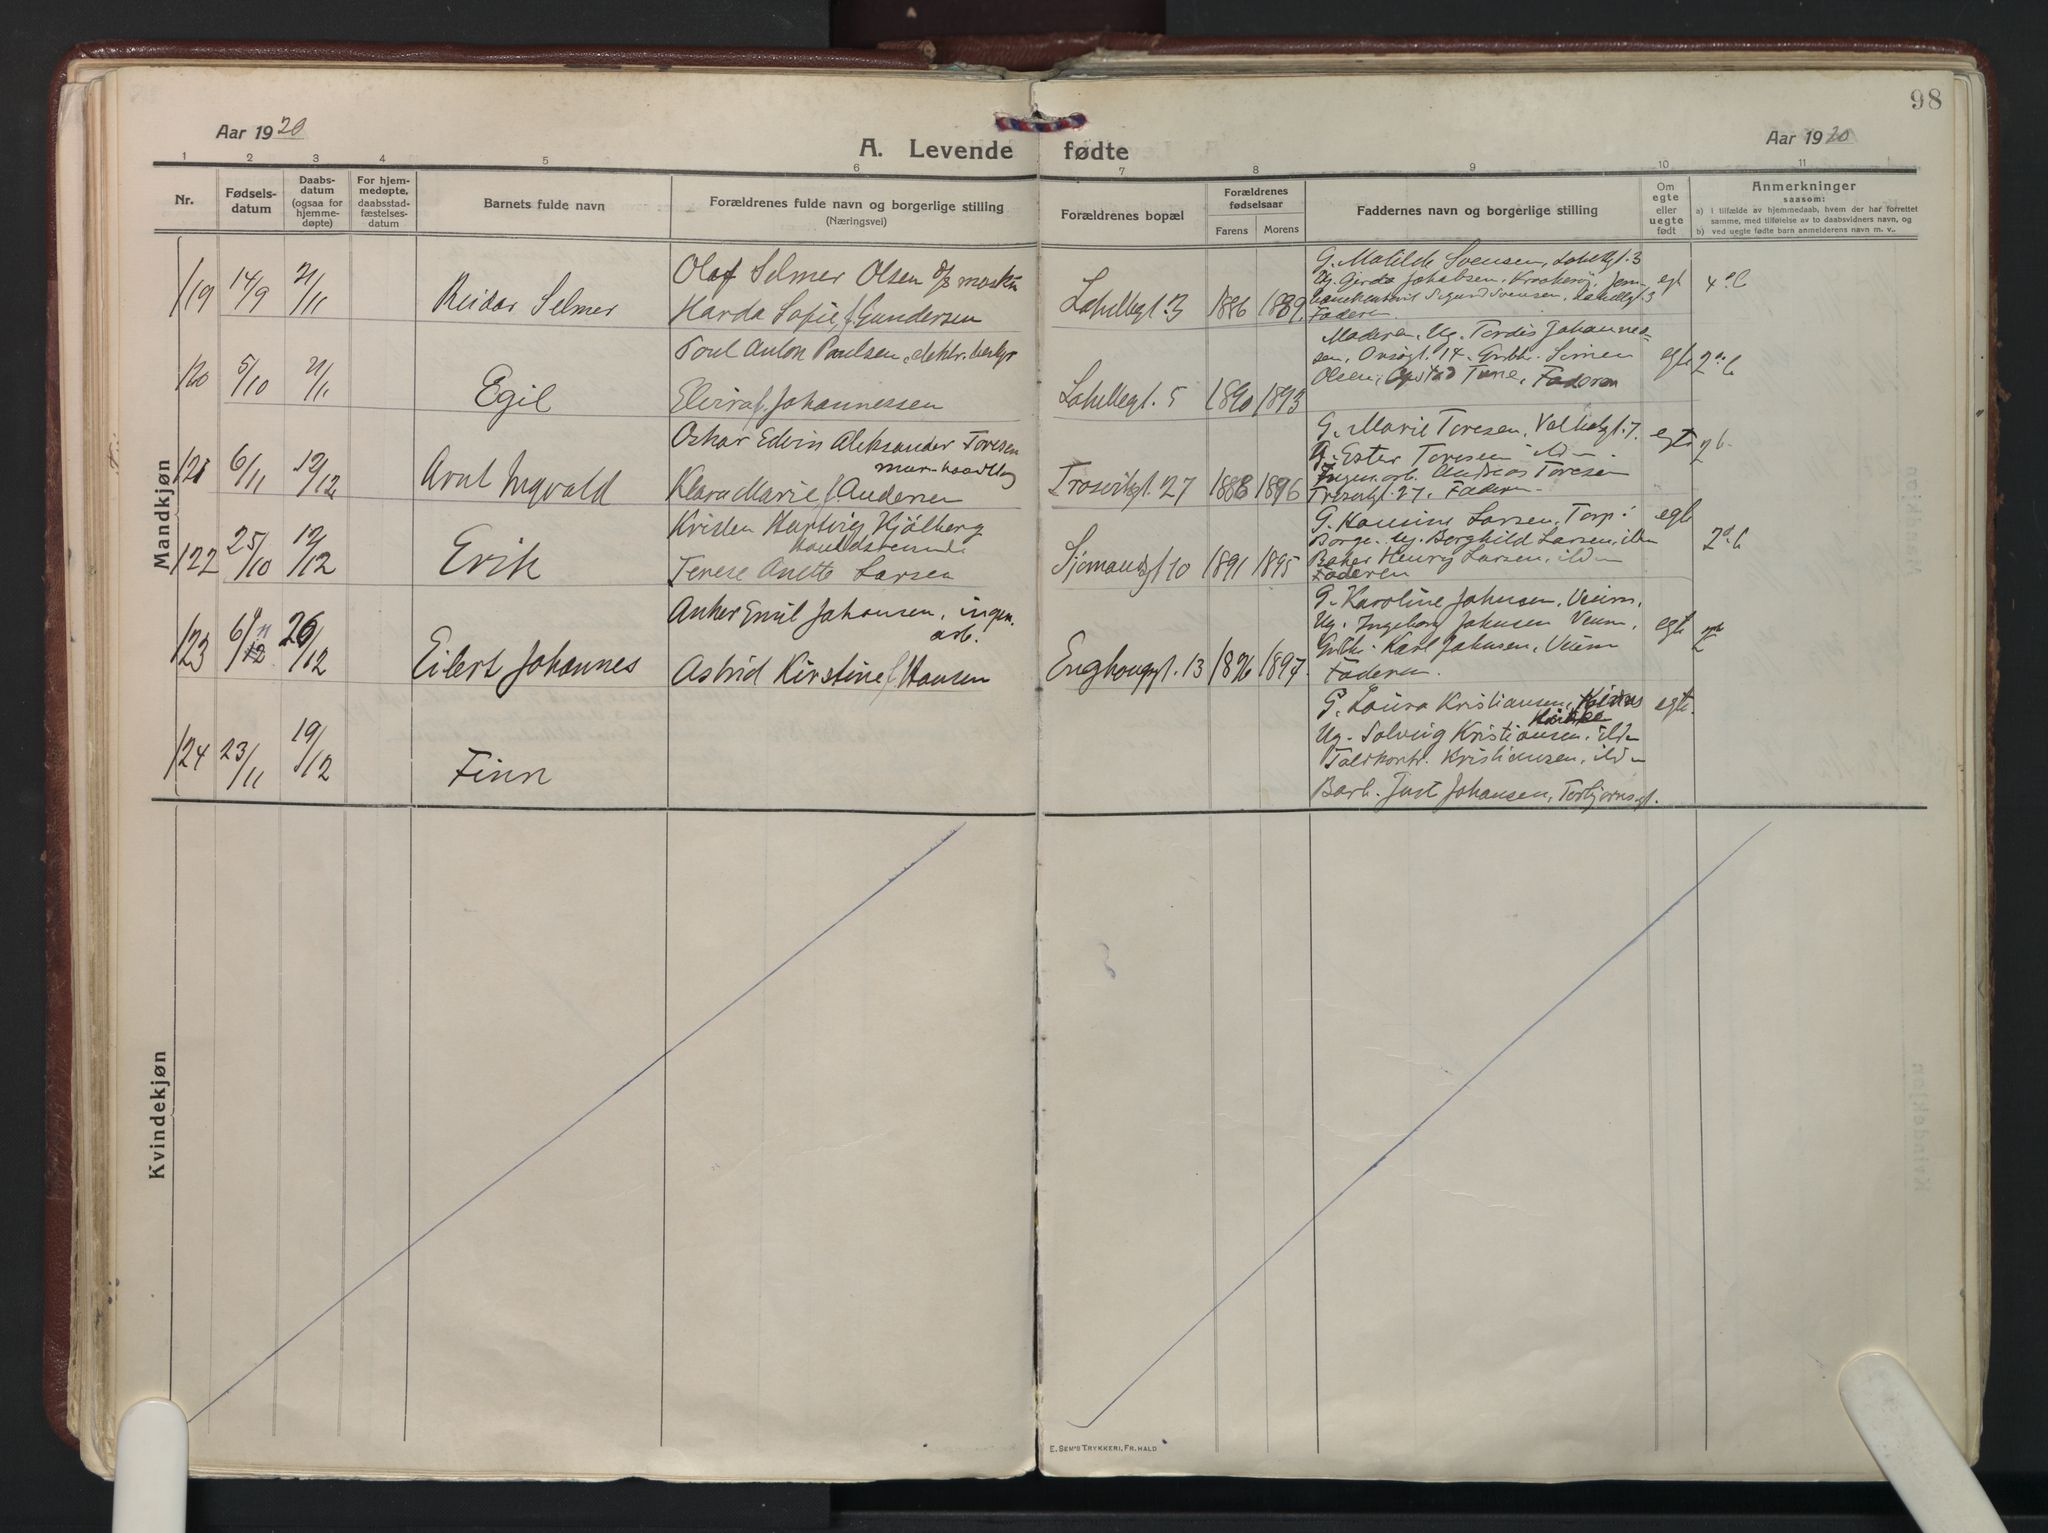 98
Aar 1920
A. Levende fødte
Aar 1920
1 2 3 4 5 6 7 8 9 10 11
Nr.
Fødselsdatum
Daabsdatum (ogsaa for hjemmedøpte)
For hjemmedøpte, daabsstadfæstelsesdatum
Barnets fulde navn
Forældrenes fulde navn og borgerlige stilling
(Næringsvei)
Forældrenes bopæl
Forældrenes fødselsaar
Farens Morens
Faddernes navn og borgerlige stilling
Om egte eller uegte født
Anmerkninger
saasom:
a) i tilfælde av hjemmedaab, hvem der har forrettet samme, med tilføielse av to daabsvidners navn, og
b) ved uegte fødte barn anmelderens navn m. v..
Mandkjøn
119 14/9 21/11 Reidar Selmer
Olaf Selmer Olsen
Harda Sofie f. Gundersen
Lahellegt. 3 1886 1889.
G. Matilde Svensen, Lahellgt. 3
Ug. Gerda Jakobsen,
Sigurd Svensen, Lahellgt 3
Faderen
egt
120 5/10 21/11 Egil
Poul Anton Paulsen,
Elvira f. Johannessen
Lahellegt. 5 1890 1893
Moderen, Ug. Tordis Johannes-
sen, Orsøgt. 14. Grbbr. Simen
Olsen, Opstad Tune, Faderen
egte
121 6/11 12/12 Arnt Ingvald
Oskar Edvin Aleksander Toresen
Klara Marie f Andersen
Trosvikgt. 27 1888 1896
G. Marie Toresen, Valhalgt. 7.
Ester Toresen ildn.
Andreas Toresen
Trosvikgt. 27, Faderen
egte
122 25/10 12/12 Erik
Kristen Hartvig Kjølberg
handelsreisende
Terese Anette Larsen
Sjømandsgt 10 1891 1895
G. Hansine Larsen, Torp i
Borge. Ug. Borghild Larsen, ildn
Baker Henry Larsen, ildn
Faderen
egte
123 26/12 Eilert Johannes
Anker Emil Johansen, ingen.
arb.
Astrid Kirstine f. Hansen
Enghougt. 13 1896 1897.
G. Karoline Johnsen, Veum,
Ug. Ingeborg Johnsen Veum,
Karl Johnsen, Veum
Faderen.
egte
124 23/11 19/12 Finn
G. Laura Kristiansen,
Ug. Solveig Kristiansen, ildn
Toldkontr. Kristiansen, ildn
Barb. Just Johansen, Torbjørnsgt.
egte.
Kvindekjøn
E. Sem's Trykkeri, Fr.hald